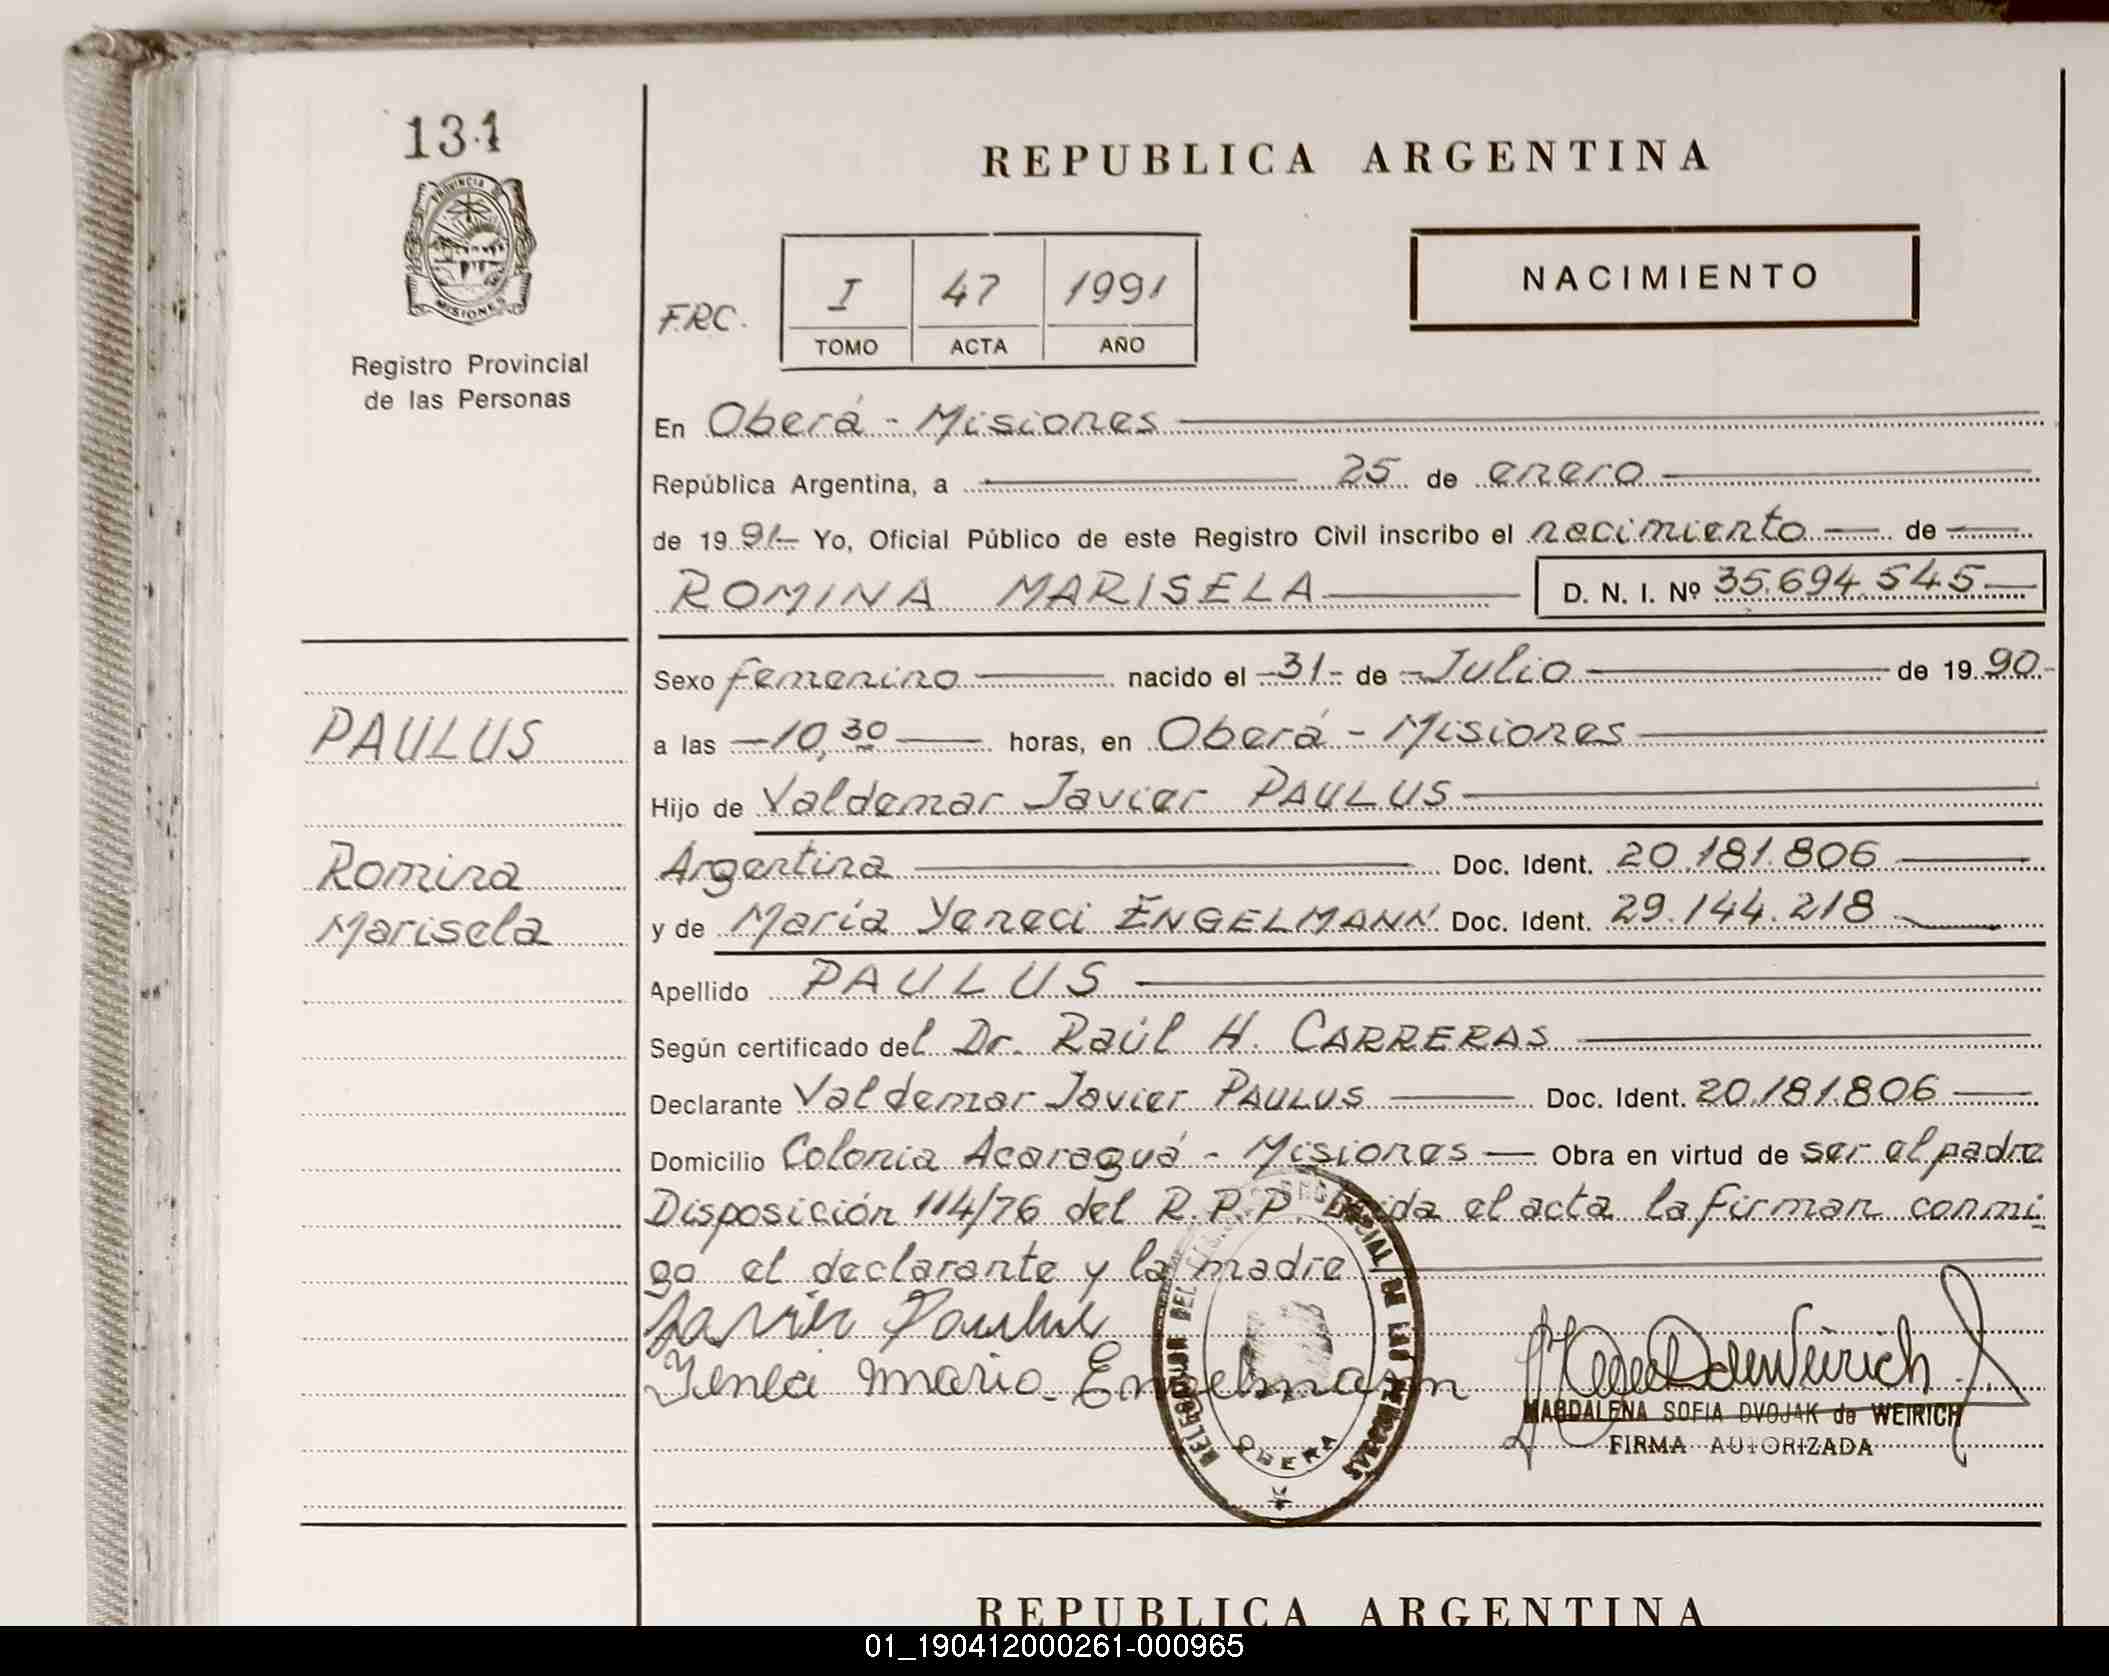 131
PROVINCIA DE
MISIONES
Registro Provincial
de las Personas
PAULUS
Romina
Marisela
REPUBLICA ARGENTINA
NACIMIENTO
F.R.C.
I 47 1991
TOMO ACTA AÑO
En Oberá - Misiones
República Argentina, a 25 de enero
de 19 91 Yo, Oficial Público de este Registro Civil inscribo el nacimiento de
ROMINA MARISELA D. N. I. Nº 35.694.545
Sexo femenino nacido el -31- de Julio de 19 90-
a las 10,30 horas, en Oberá - Misiones
Hijo de Valdemar Javier PAULUS
Argentina Doc. Ident. 20.181.806
y de María Yeneci ENGELMANN Doc. Ident. 29.144.218
Apellido PAULUS
Según certificado del Dr. Raúl H. CARRERAS
Declarante Valdemar Javier PAULUS Doc. Ident. 20.181.806
Domicilio Colonia Acaraguá - Misiones Obra en virtud de ser el padre
Disposición 114/76 del R.P.P. Leida el acta la firman conmi
go el declarante y la madre
Javier Paulus
Maria Engelmann
OBERA
MAGDALENA SOFIA DVOJAK de WEIRICH
FIRMA AUTORIZADA
REPUBLICA ARGENTINA
01_190412000261-000965